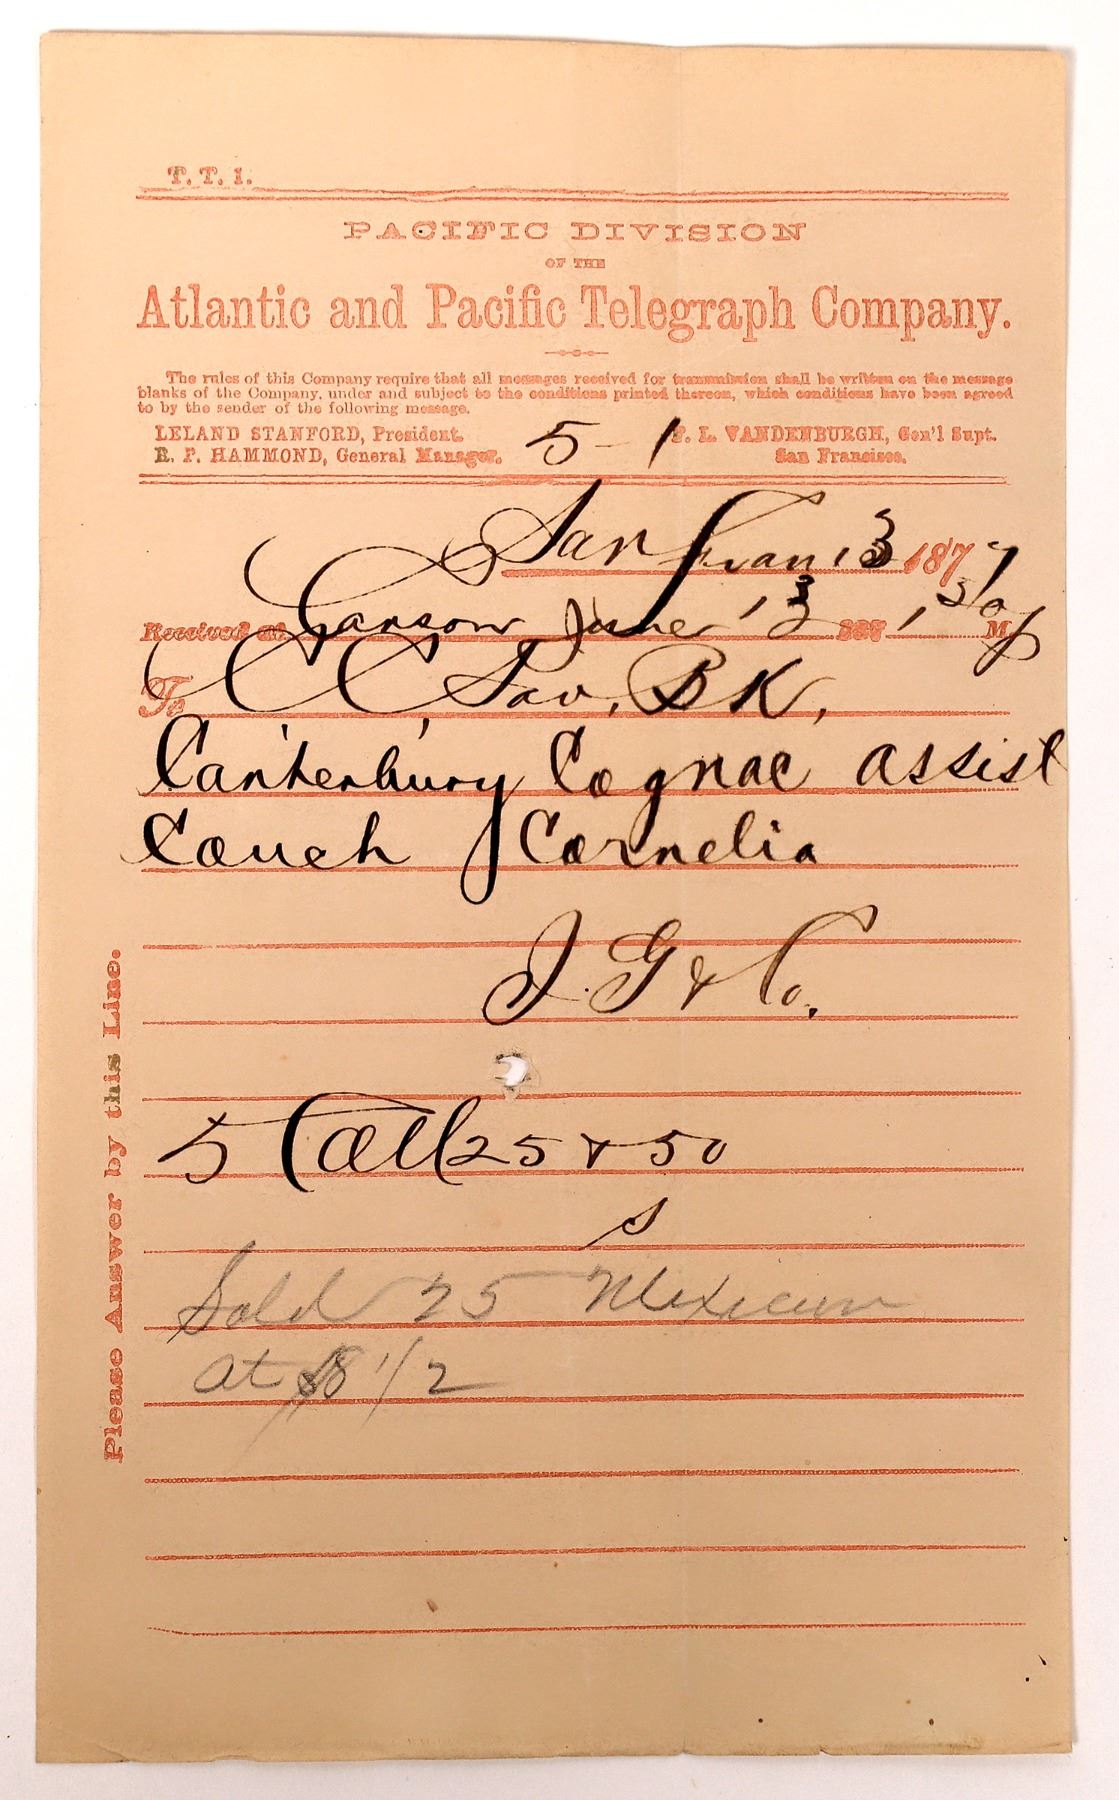 T. T. 1.
PACIFIC DIVISION
OF THE
Atlantic and Pacific Telegraph Company.
The rules of this Company require that all messages received for transmission shall be written on the message
blanks of the Company, under and subject to the conditions printed thereon, which conditions have been agreed
to by the sender of the following message.
LELAND STANFORD, President.
F. L. VANDENBURGH, Gen'l Supt.
R. P. HAMMOND, General Manager.
San Francisco.
5 - 1
San Fran 13 1877
Received at Carson June 13 187 1 30 P M.
To C C Sav. BK,
Canterbury Cognac assist
Couch Cornelia
J. G & Co.
5 Coll 25 & 50
s
Sold 25 Mexican
at $8 1/2
Please Answer by this Line.